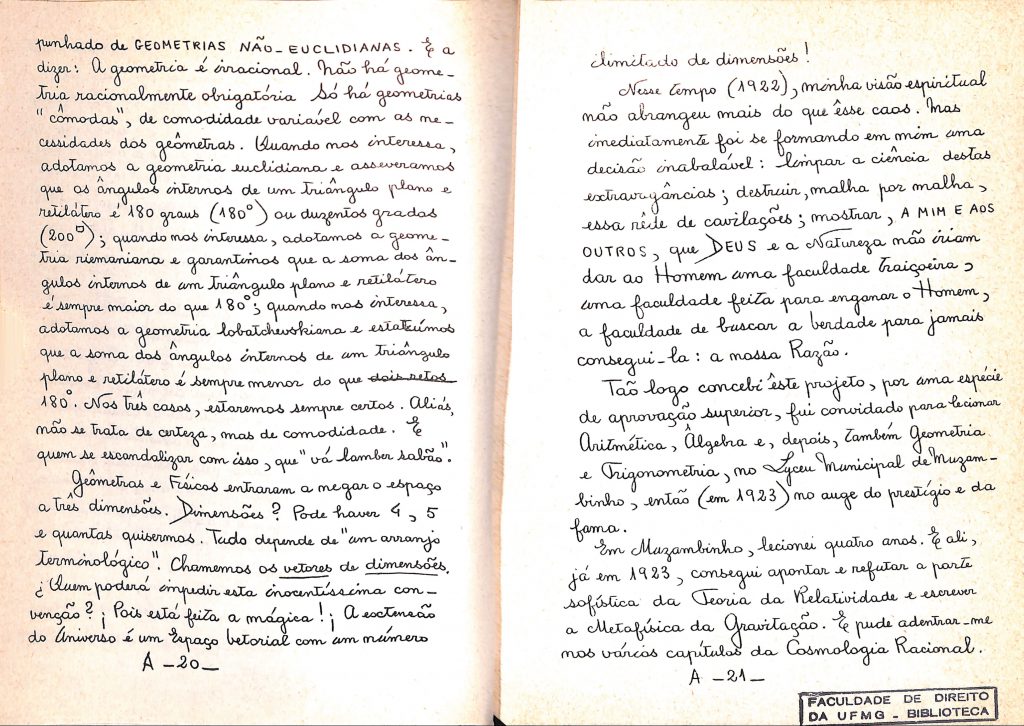 punhado de GEOMETRIAS NÃO-EUCLIDIANAS. E a
dizer: A geometria é irracional. Não há geome-
tria racionalmente obrigatória Só há geometrias
"cômodas", de comodidade variável com as ne-
cessidades dos geômetras. Quando nos interessa,
adotamos a geometria euclidiana e asseveramos
que os ângulos internos de um triângulo plano e
retilátero é 180 graus (180°) ou duzentos grados
(200▫); quando nos interessa, adotamos a geome-
tria riemaniana e garantimos que a soma dos ân-
gulos internos de um triângulo plano e retilátero
é sempre maior do que 180°; quando nos interessa,
adotamos a geometria lobatchevskiana e estatuímos
que a soma dos ângulos internos de um triângulo
plano e retilátero é sempre menor do que dois retos
180°. Nos três casos, estaremos sempre certos. Aliás,
não se trata de certeza, mas de comodidade. E
quem se escandalizar com isso, que "vá lamber sabão".
Geômetras e Físicos entraram a negar o espaço
a três dimensões. Dimensões? Pode haver 4, 5
e quantas quisermos. Tudo depende de "um arranjo
terminológico". Chamemos os vetores de dimensões.
¿Quem poderá impedir esta inocentíssima con-
venção? ¡Pois está feita a mágica! ¡A extensão
do Universo é um Espaço vetorial com um número
A -20-
ilimitado de dimensões!
Nesse tempo (1922), minha visão espiritual
não abrangeu mais do que êsse caos. Mas
imediatamente foi se formando em mim uma
decisão inabalável: limpar a ciência destas
extravagâncias; destruir, malha por malha,
essa rêde de cavilações; mostrar, A MIM E AOS
OUTROS, que DEUS e a Natureza não iriam
dar ao Homem uma faculdade traiçoeira,
uma faculdade feita para enganar o Homem,
a faculdade de buscar a verdade para jamais
consegui-la: a nossa Razão.
Tão logo concebi êste projeto, por uma espécie
de aprovação superior, fui convidado para lecionar
Aritmética, Álgebra e, depois, também Geometria
e Trigonometria, no Lyceu Municipal de Muzam-
binho, então (em 1923) no auge do prestígio e da
fama.
Em Muzambinho, lecionei quatro anos. E ali,
já em 1923, consegui apontar e refutar a parte
sofística da Teoria da Relatividade e escrever
a Metafísica da Gravitação. E pude adentrar-me
nos vários capítulos da Cosmologia Racional.
A -21-
FACULDADE DE DIREITO
DA UFMG - BIBLIOTECA